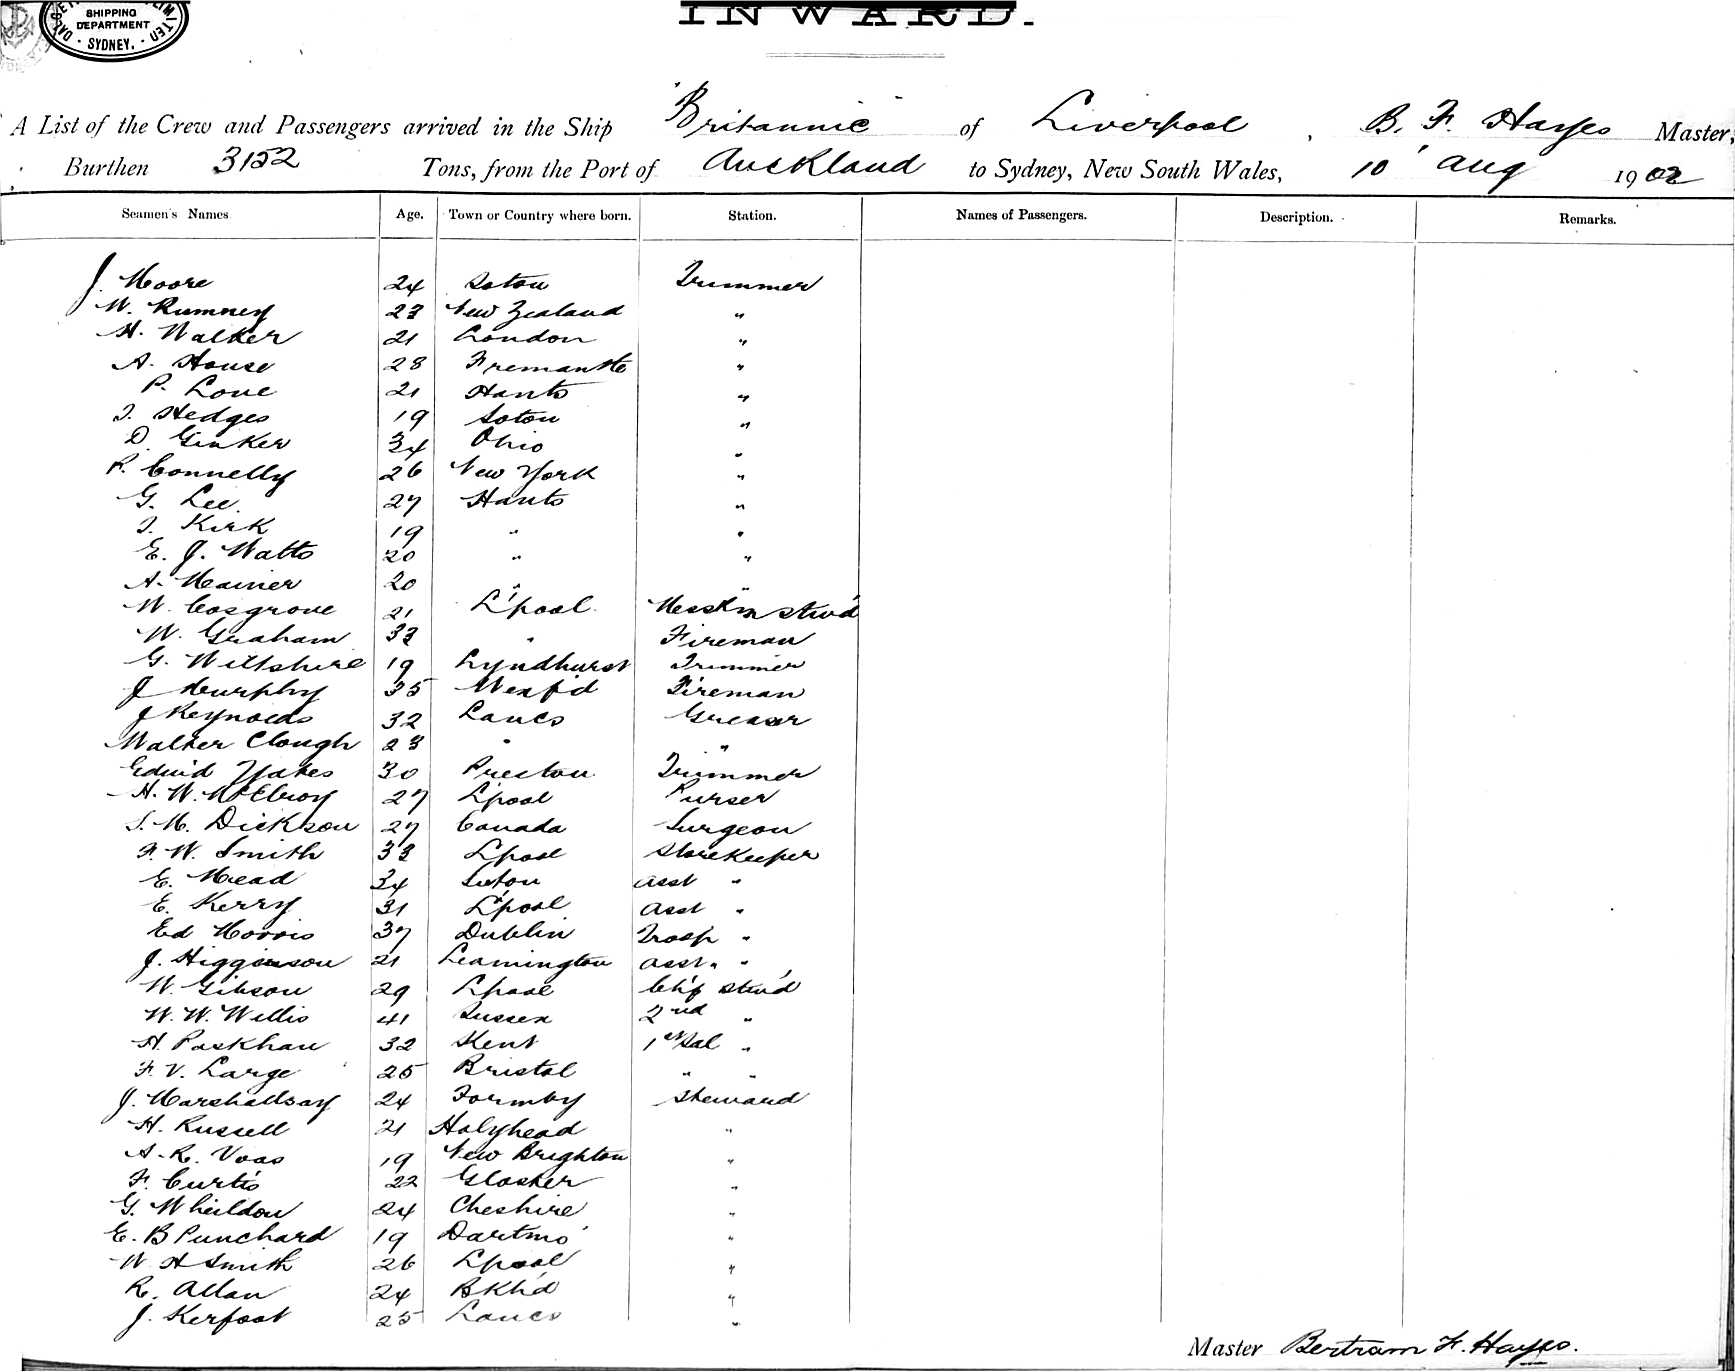 SHIPPING
DEPARTMENT
SYDNEY.
INWARD.
A List of the Crew and Passengers arrived in the Ship Britannic of Liverpool, B. F. Hayes Master,
Burthen 3152 Tons, from the Port of Auckland to Sydney, New South Wales, 10 Aug 1902
Seamen's Names Age. Town or Country where born. Station. Names of Passengers. Description. Remarks.
J. Moore 24 Soton Trimmer
W. Rumney 23 New Zealand "
H. Walker 21 London "
A. House 28 Fremantle "
P. Love 21 Hants "
J. Hedges 19 Soton "
D. Ginker 34 Ohio "
P. Connelly 26 New York "
G. Lee 27 Hants "
J. Kirk 19 " "
E. J. Watts 20 " "
A. Mainer 20 " "
W. Cosgrove 21 L'pool Stwd
W. Graham 33 " Fireman
G. Wiltshire 19 Lyndhurst Trimmer
J Murphy 35 Wexf'd Fireman
J Reynolds 32 Lancs Greaser
Walter Clough 28 " "
Edwd Yates 30 Preston Trimmer
H. W. McElroy 27 L'pool Purser
S. M. Dickson 27 Canada Surgeon
F. W. Smith 33 L'pool Storekeeper
E. Mead 34 Luton asst "
E. Kerry 31 L'pool asst "
Ed Morris 37 Dublin Troop "
J. Higginson 21 Leamington asst " "
W. Gibson 29 L'pool Ch'f Stw'd
W. W. Willis 41 Sussex 2nd "
H. Packhau 32 Kent 1st Sal "
F. V. Large 25 Bristol " "
J. Marshallsay 24 Formby Steward
H. Russell 21 Holyhead "
A. R. Voas 19 New Brighton "
F. Curtis 22 Gloster "
G. Wheildon 24 Cheshire "
E. B Punchard 19 Dartmo' "
W H Smith 26 L'pool "
R. Allan 24 BKh'd "
J. Kerfoot 25 Lancs "
Master Bertram F. Hayes.